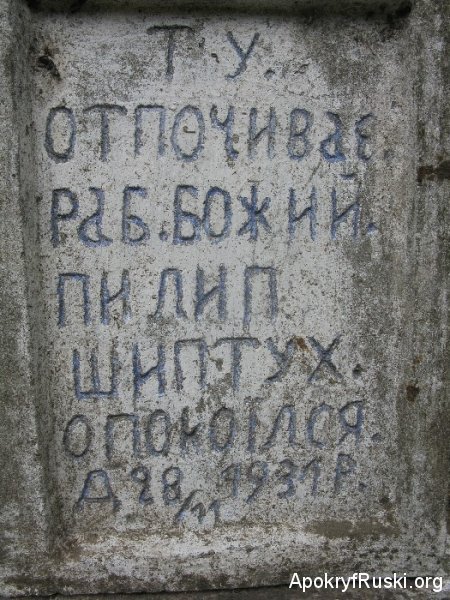 ТУ.
ОТПОЧИВАЄ
РАБ. БОЖИЙ.
ПИЛИП
ШИПТУХ.
ОПОКОІЛСЯ.
Д. 28/11 1931 Р.
ApokryfRuski.org